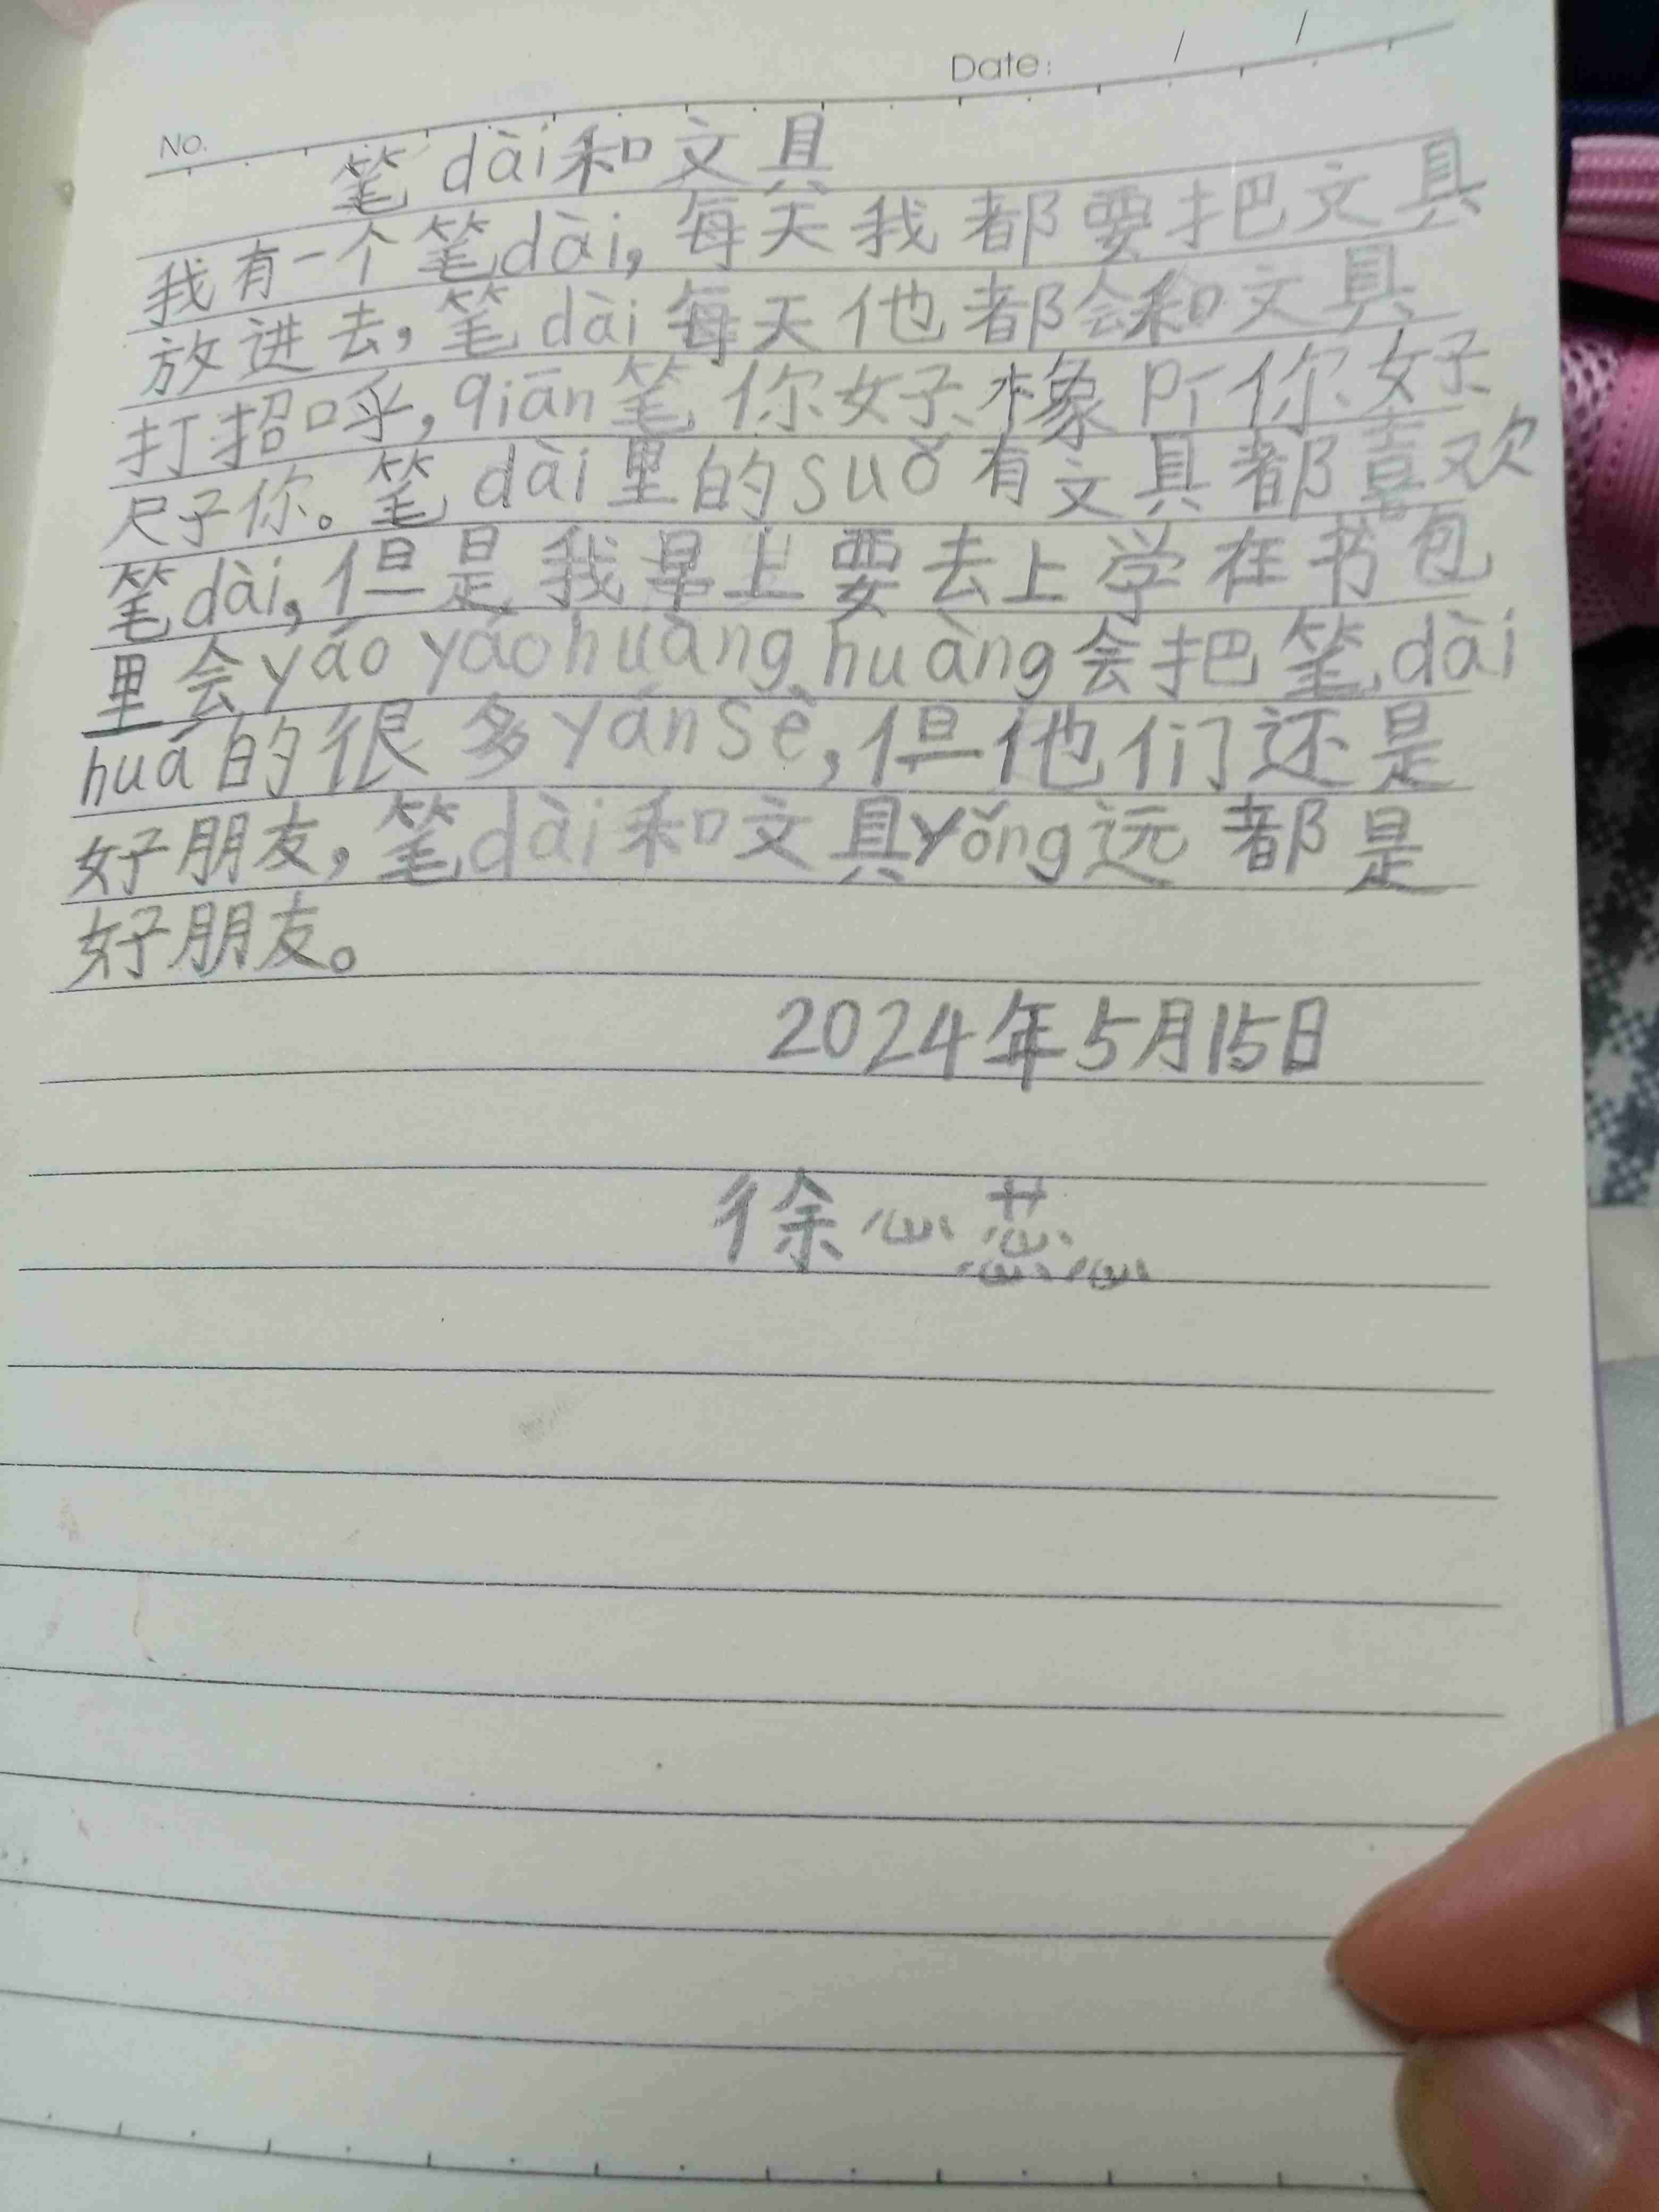 Date: / /
No.
笔dài和文具
我有一个笔dài,每天我都要把文具
放进去,笔dài每天他都会和文具
打招呼,qiān笔你好橡 你好
尺子你。笔dài里的suǒ有文具都喜欢
笔dài,但是我早上要去上学在书包
里会yáo yáo huàng huàng会把笔dài
huá的很多yán sè,但他们还是
好朋友,笔dài和文具yǒng远都是
好朋友。
2024年5月15日
徐心蕊